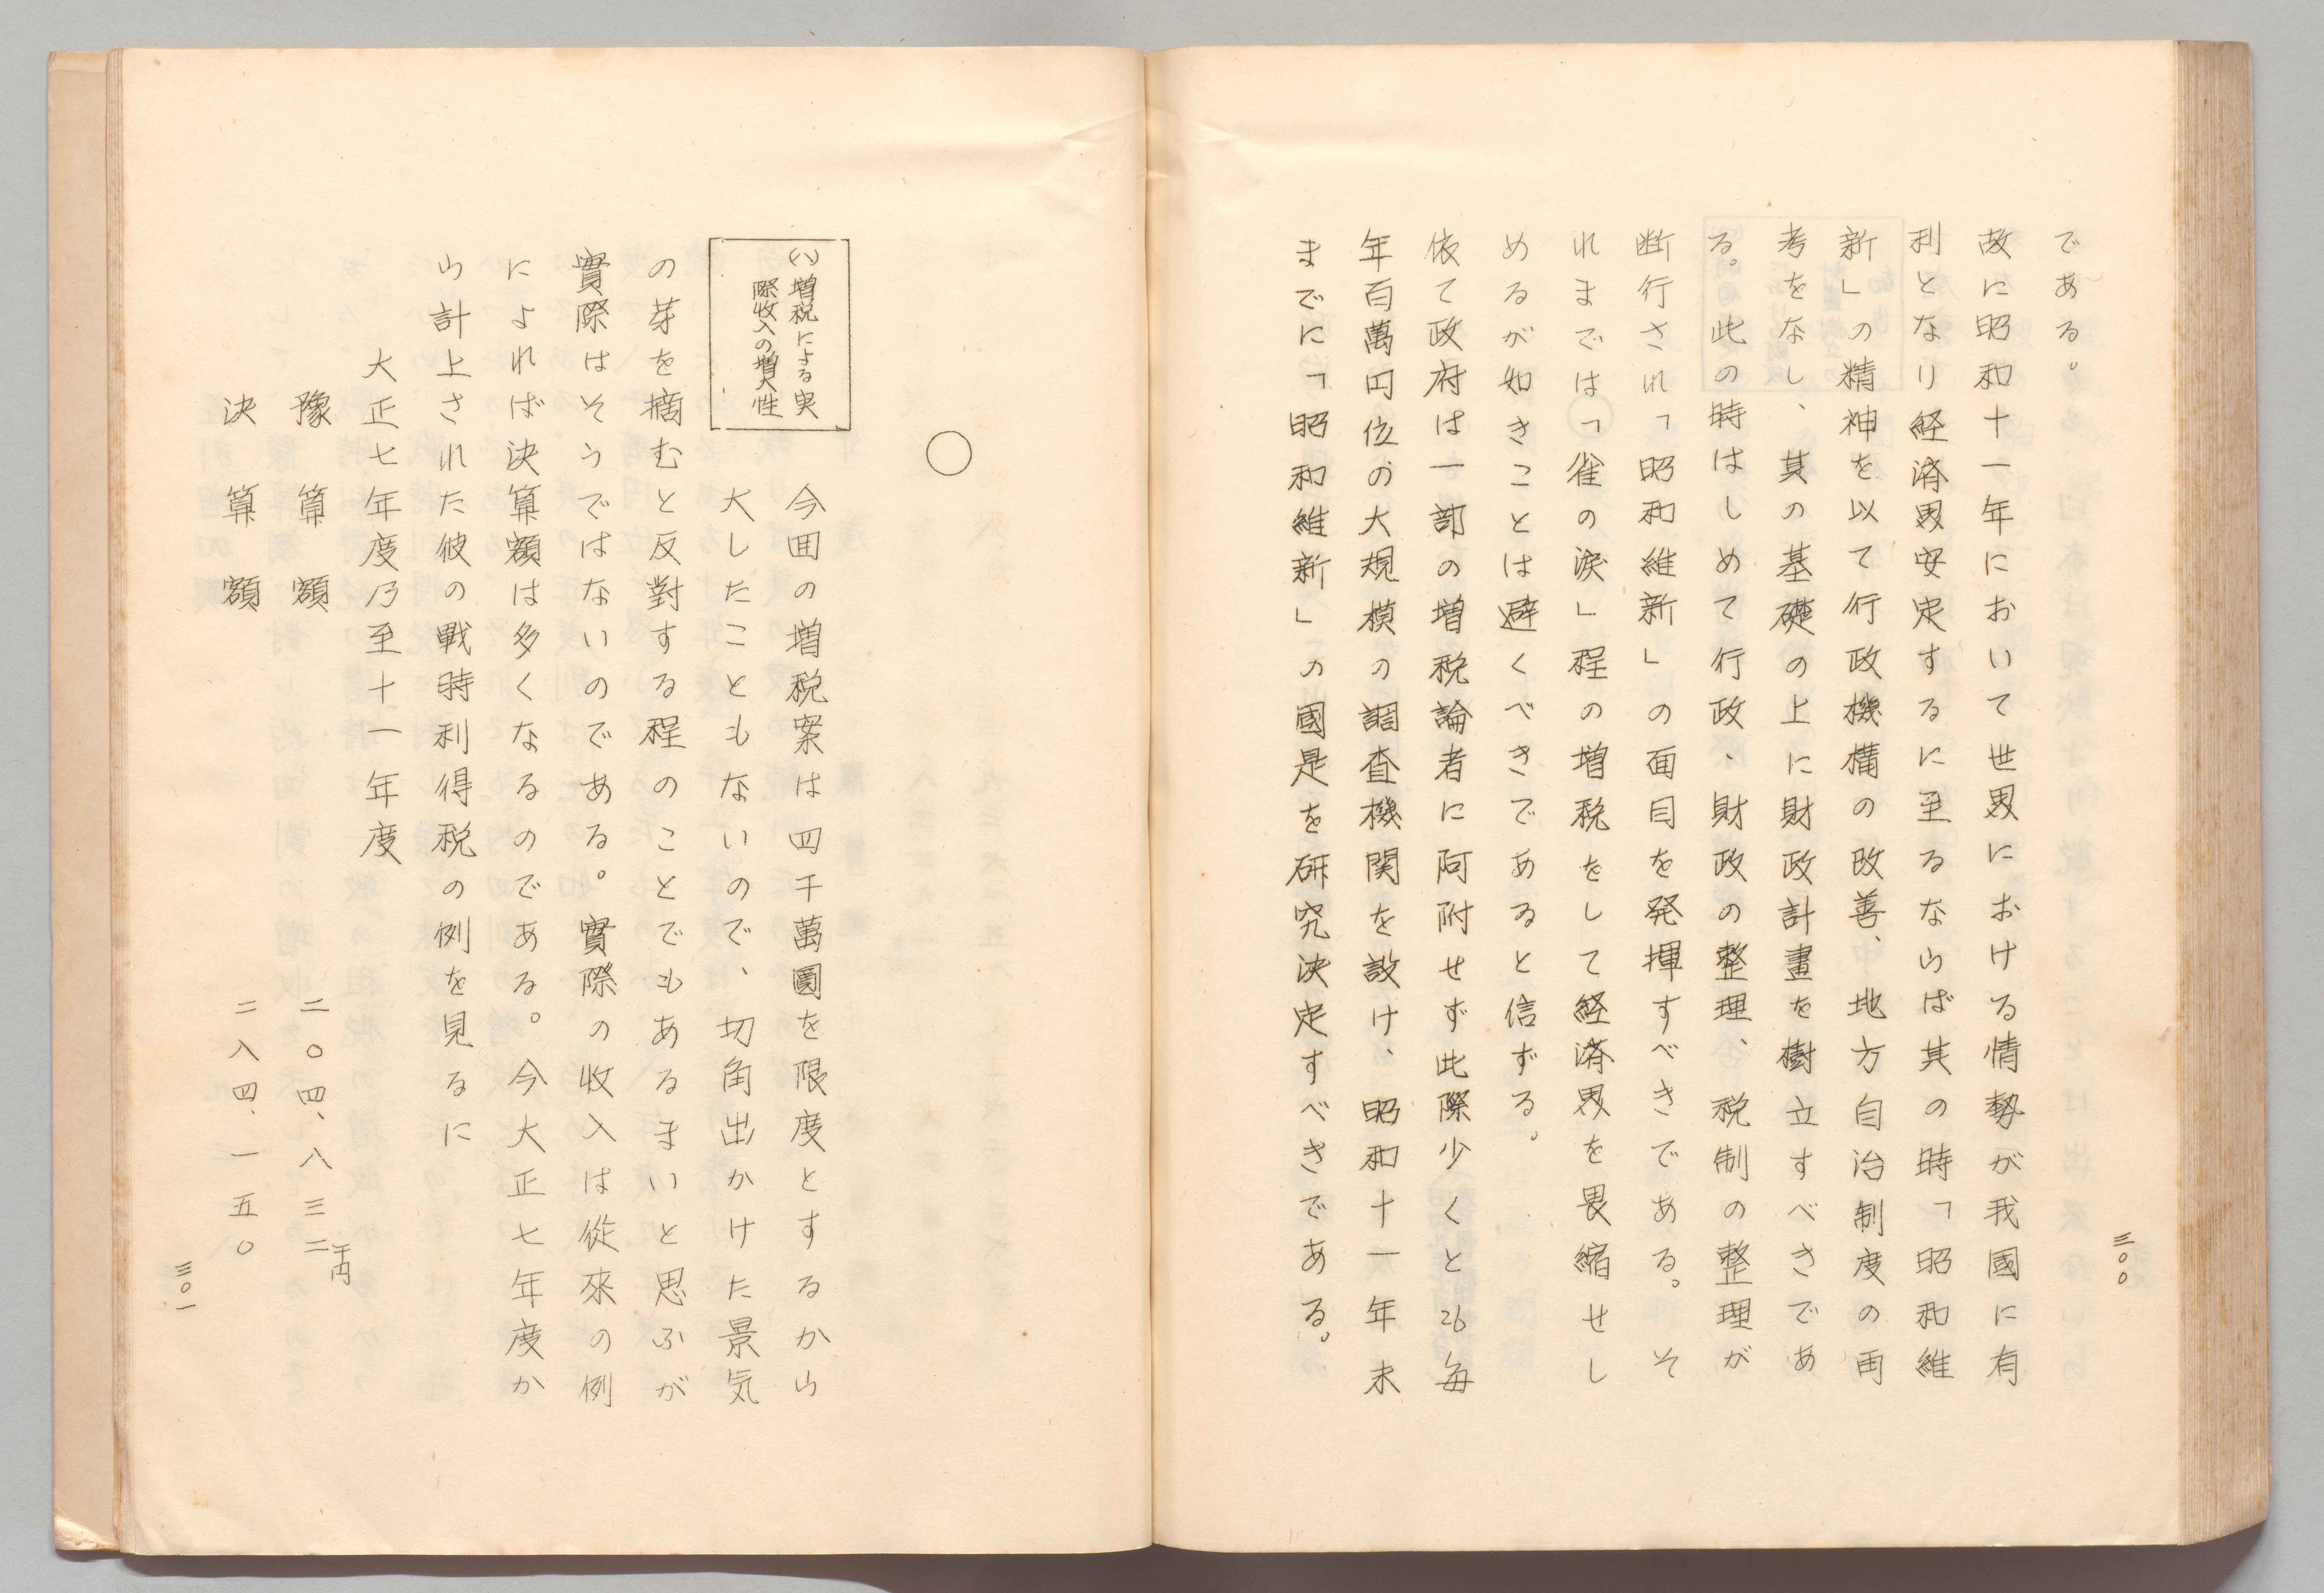 である。
故に昭和十一年において世界における情勢が我國に有
利となり経済界安定するに至るならば其の時「昭和維
新」の精神を以て行政機構の改善、地方自治制度の再
考をなし、其の基礎の上に財政計畫を樹立すべきであ
る。此の時はしめて行政、財政の整理、税制の整理が
断行され「昭和維新」の面目を発揮すべきである。そ
れまでは「雀の涙」程の増税をして経済界を畏縮せし
めるが如きことは避くべきであると信ずる。
依て政府は一部の増税論者に阿附せず此際少くとも毎
年百萬円位の大規模の調査機関を設け、昭和十一年末
までに「昭和維新」の國是を研究決定すべきである。
三〇〇
○
(ハ)増税による実
際收入の増大性
今囬の増税案は四千萬圓を限度とするから
大したこともないので、切角出かけた景気
の芽を摘むと反對する程のことでもあるまいと思ふが
實際はそうではないのである。實際の收入は從來の例
によれば決算額は多くなるのである。今大正七年度か
ら計上された彼の戰時利得税の例を見るに
大正七年度乃至十一年度
豫算額 二〇四、八三二千円
決算額 二八四、一五〇
三〇一